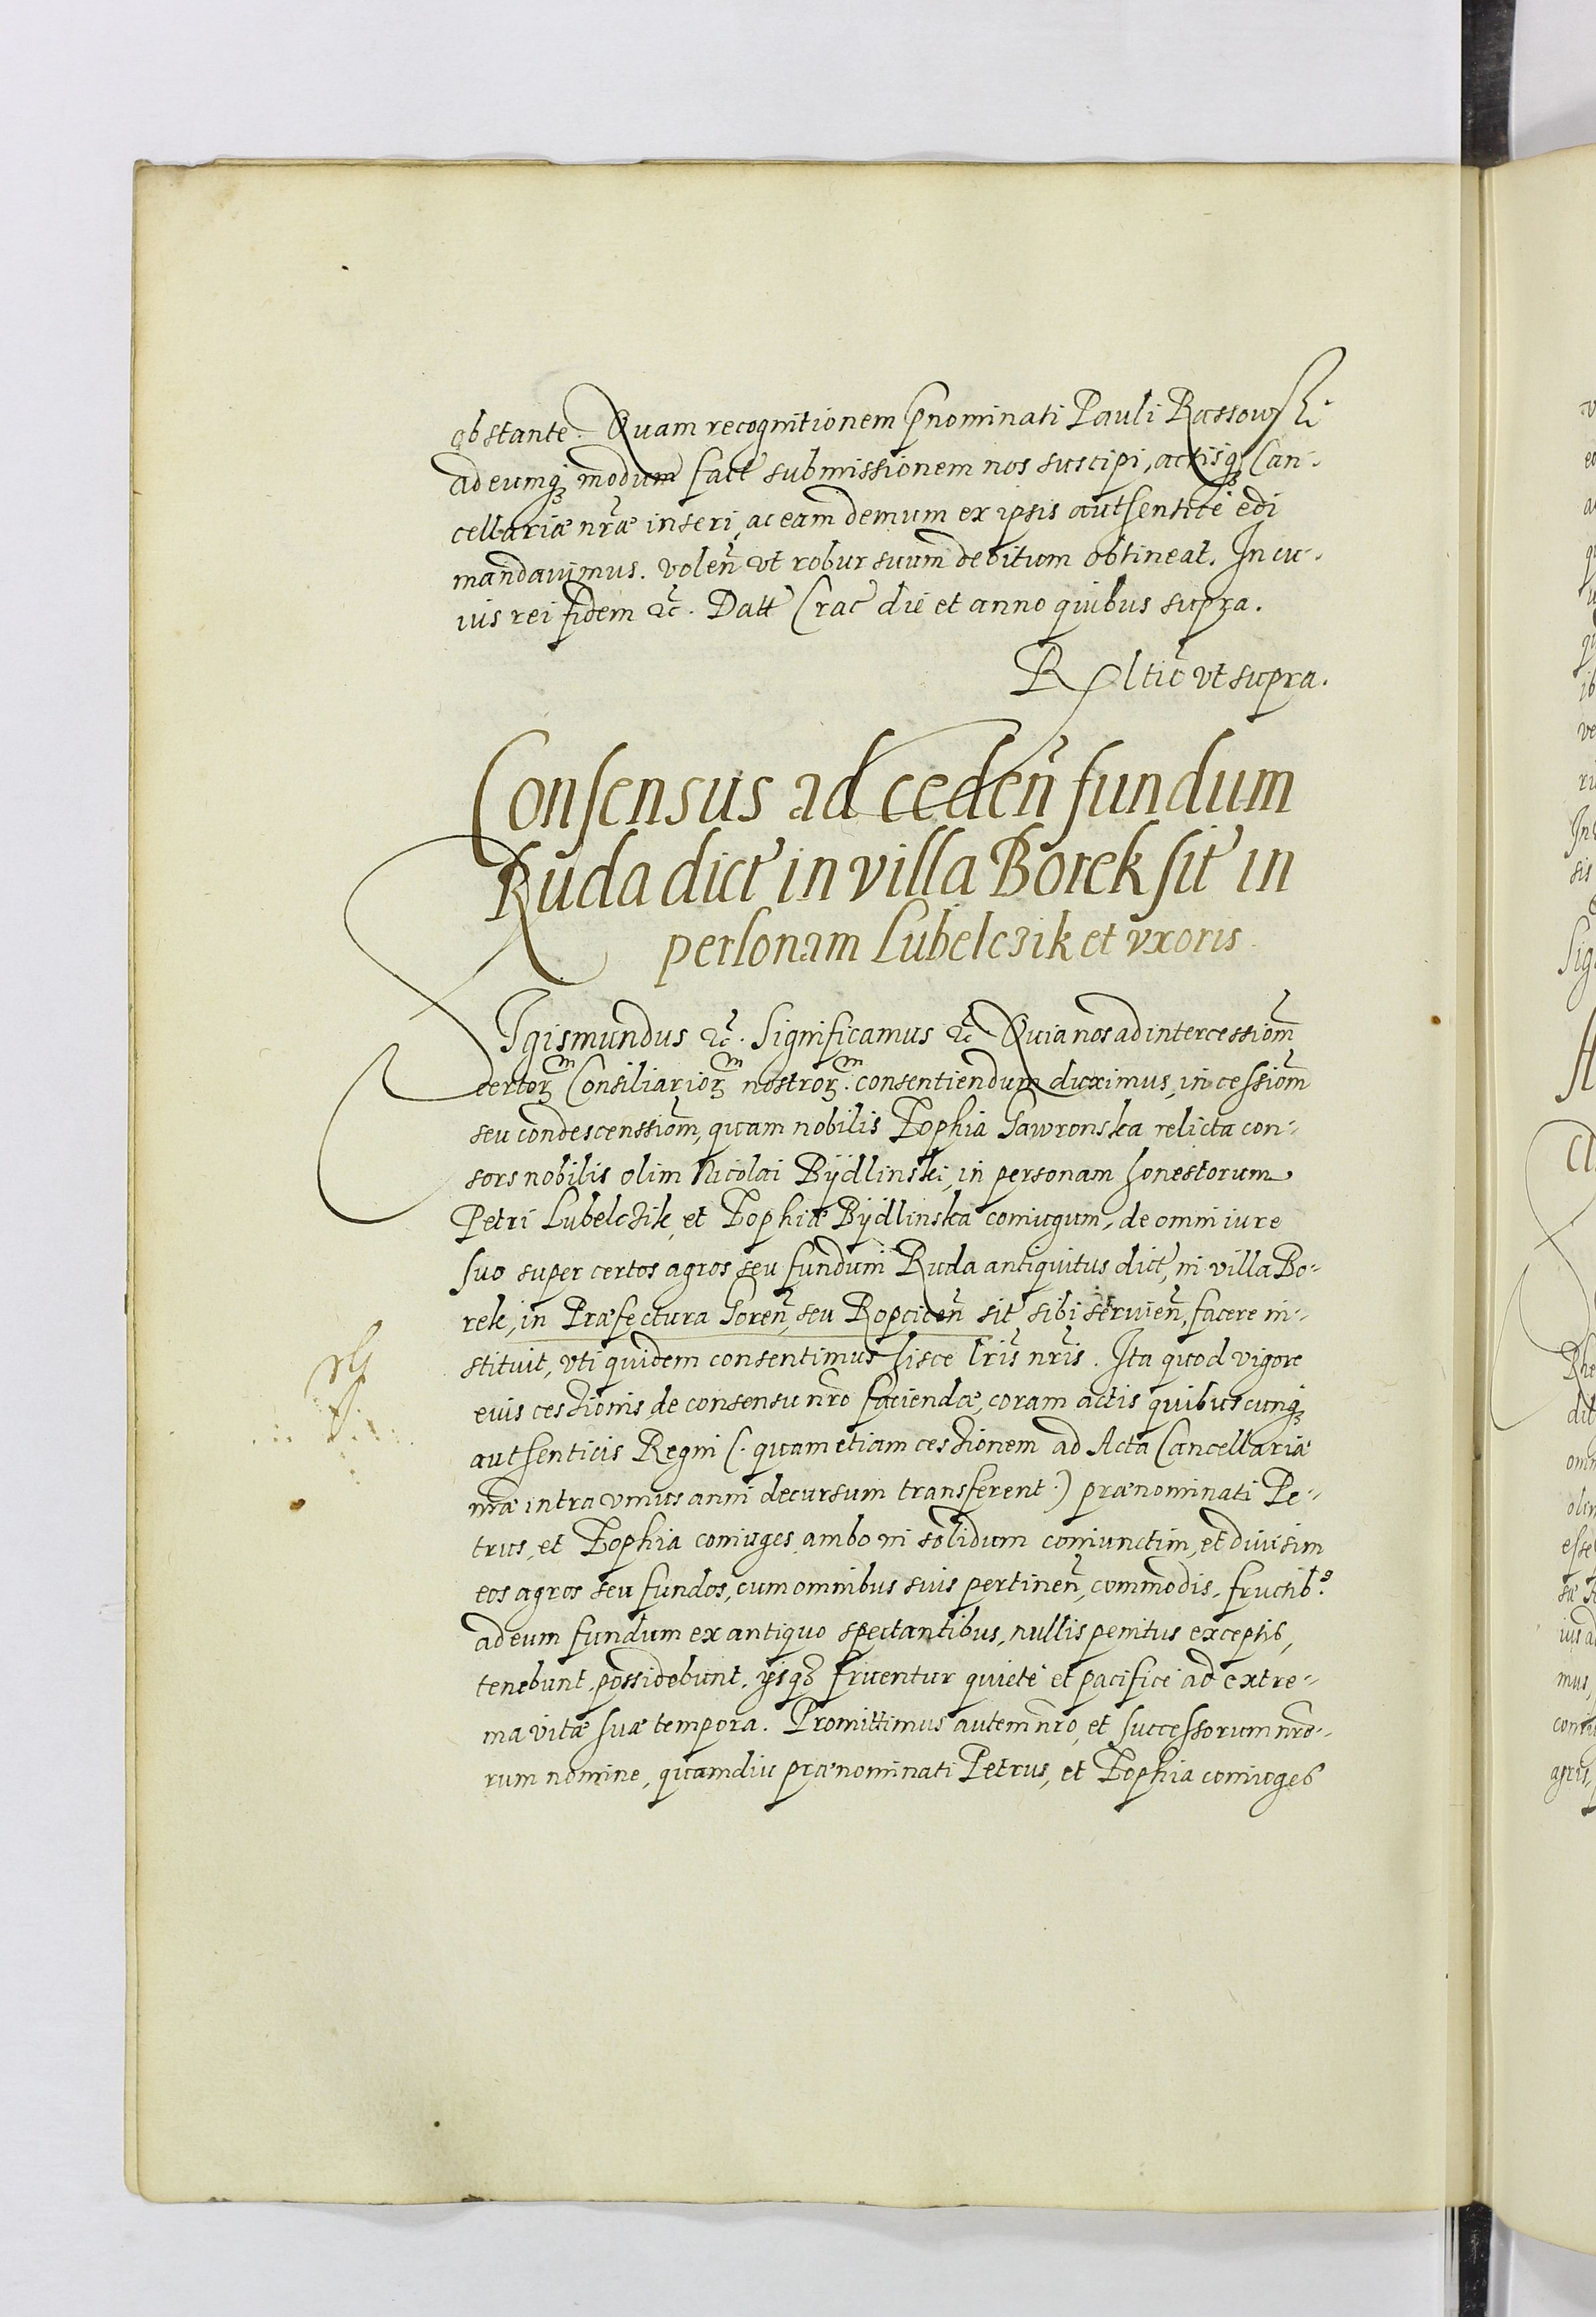 obstante. Quam recognitionem p̄nominati Pauli Rassowski
ad eumq̃ modum fact̃ submissionem nos suscipi, actisq̃ Can-
cellariæ nr̃æ inseri, ac eam demum ex ipsis authenticè edi
mandavimus. volen̄ vt robur suum debitum obtineat. In cu-
ius rei fidem &c̃. Datt̃ Crac̃ die et anno quibus supra.
R̃ltiō vt supra.
Consensus ad ceden̄ fundum
Ruda dict̃ in villa Borek sit̃ in
personam Lubelczik et vxoris.
Sigismundus &c̃. Significamus &c̃ Quia nos ad intercessiom̃
certorꝝ Consiliariorꝝ nostrorꝝ. consentiendum duximus, in cessiom̃
seu condescenssiom̃, quam nobilis Zophia Gawronska relicta con-
sors nobilis olim Nicolai Bÿdlinski, in personam honestorum
Petri Lubelczik, et Zophiæ Bÿdlinska coniugum, de omni iure
suo super certos agros seu fundum Ruda antiquitus dict̃, in villa Bo-
rek, in Præfectura Goren̄, seu Ropcicen̄ sit̃ sibi servien̄, facere in-
stituit, vti quidem consentimus hisce lr̃is nr̃is. Ita quod vigore
euis cesSionis de consensu nr̃o faciendæ, coram actis quibuscunq̃
authenticis Regni (. quam etiam cesSionem ad Acta Cancellariæ
nr̃æ intra vnius anni decursum transferent .) prænominati Pe-
trus, et Zophia coniuges ambo in solidum coniunctim, et divisim
eos agros seu fundos, cum omnibus suis pertinen̄, commodis, fructib⁹
ad eum fundum ex antiquo spectantibus, nullis penitus exceptis,
tenebunt, possidebunt, ÿsq̃ fruentur quietè et pacificè ad extre-
ma vitæ suæ tempora. Promittimus autem nr̃o, et successorum nr̃o-
rum nomine, quamdiu prænominati Petrus, et Zophia coniuges